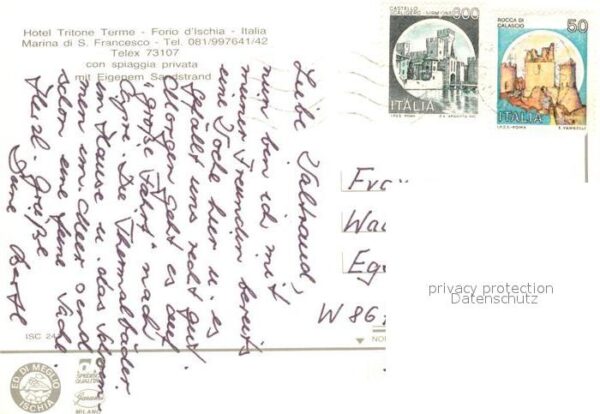 Hotel Tritone Terme - Forio d'Ischia - Italia
Marina di S. Francesco - Tel. 081/997641/42
Telex 73107
con spiaggia privata
mit Eigenem Sandstrand
CASTELLO
600
ITALIA
ROCCA DI
CALASCIO
50
ITALIA
I.P.Z.S. - ROMA
E. VANGELLI
nun bin ich mit
meiner Freundin bereits
eine Woche hier u. es
gefällt uns recht gut.
Morgen geht es auf
"große Fahrt" nach
Capri. Die Thermalbäder
im Hause u. das
men im Meer sind
schon eine feine Sache.
Herzl. Grüße
W 86
privacy protection
Datenschutz
ISC 24
ED. DI MEGLIO
ISCHIA
MILANO